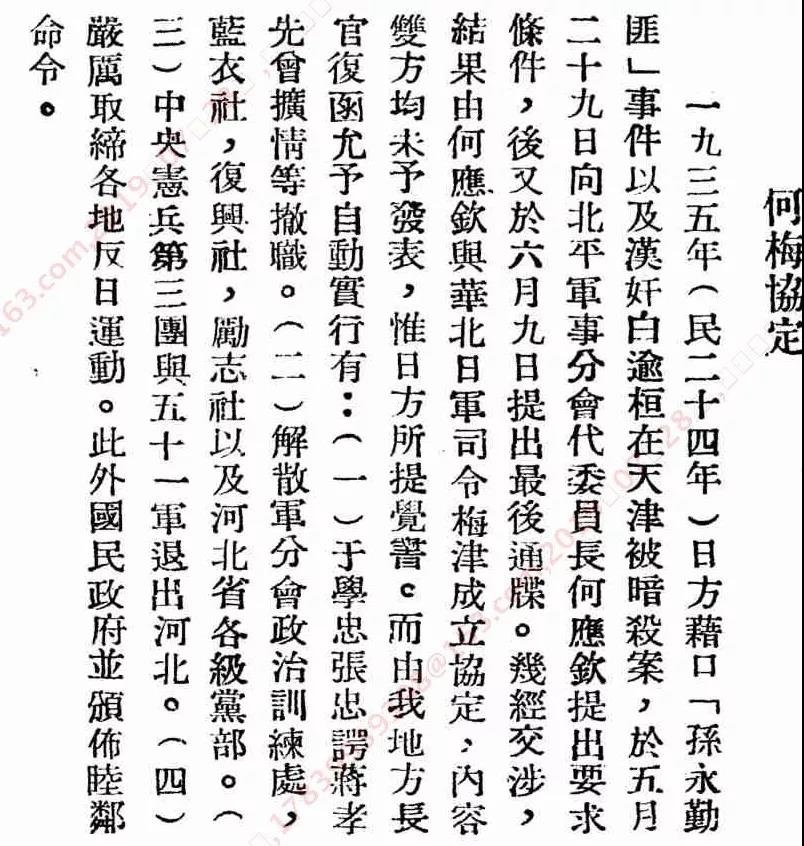 何梅協定
一九三五年（民二十四年）日方藉口「孫永勤
匪」事件以及漢奸白逾桓在天津被暗殺案，於五月
二十九日向北平軍事分會代委員長何應欽提出要求
條件，後又於六月九日提出最後通牒。幾經交涉，
結果由何應欽與華北日軍司令梅津成立協定，內容
雙方均未予發表，惟日方所提覺書。而由我地方長
官復函允予自動實行有：（一）于學忠張忠諤蔣孝
先曾擴情等撤職。（二）解散軍分會政治訓練處，
藍衣社，復興社，勵志社以及河北省各級黨部。（
三）中央憲兵第三團與五十一軍退出河北。（四）
嚴厲取締各地反日運動。此外國民政府並頒佈睦鄰
命令。